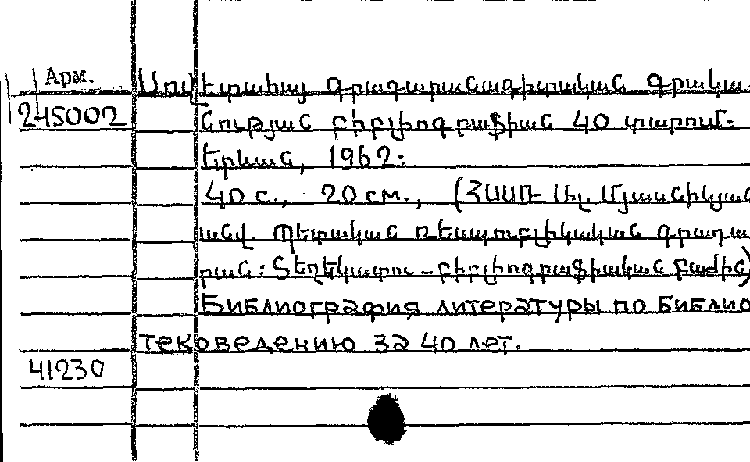 Арм.
245002
Սովետահայ գրադարանագիտական գրակա-
նության բիբլիոգրաֆիան 40 տարում։
Երևան, 1962։
40 с., 20 см., (ՀՍՍՌ Ալ. Մյասնիկյան
անվ. Պետական Ռեսպուբլիկական գրադա
րան։ Տեղեկատու-բիբլիոգրաֆիական բաժին)
Библиография литературы по библио
тековедению за 40 лет.
41230